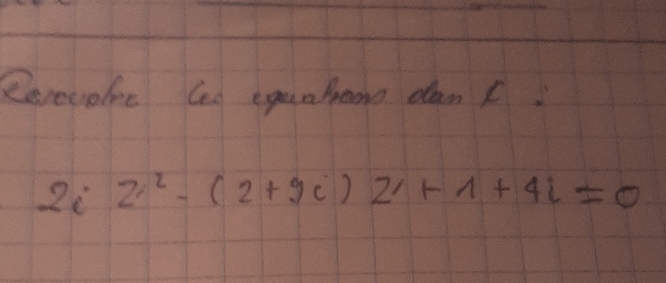 Resoudre les equations dan ℂ :
2i z² - (2+9i) z + 1 + 4i = 0